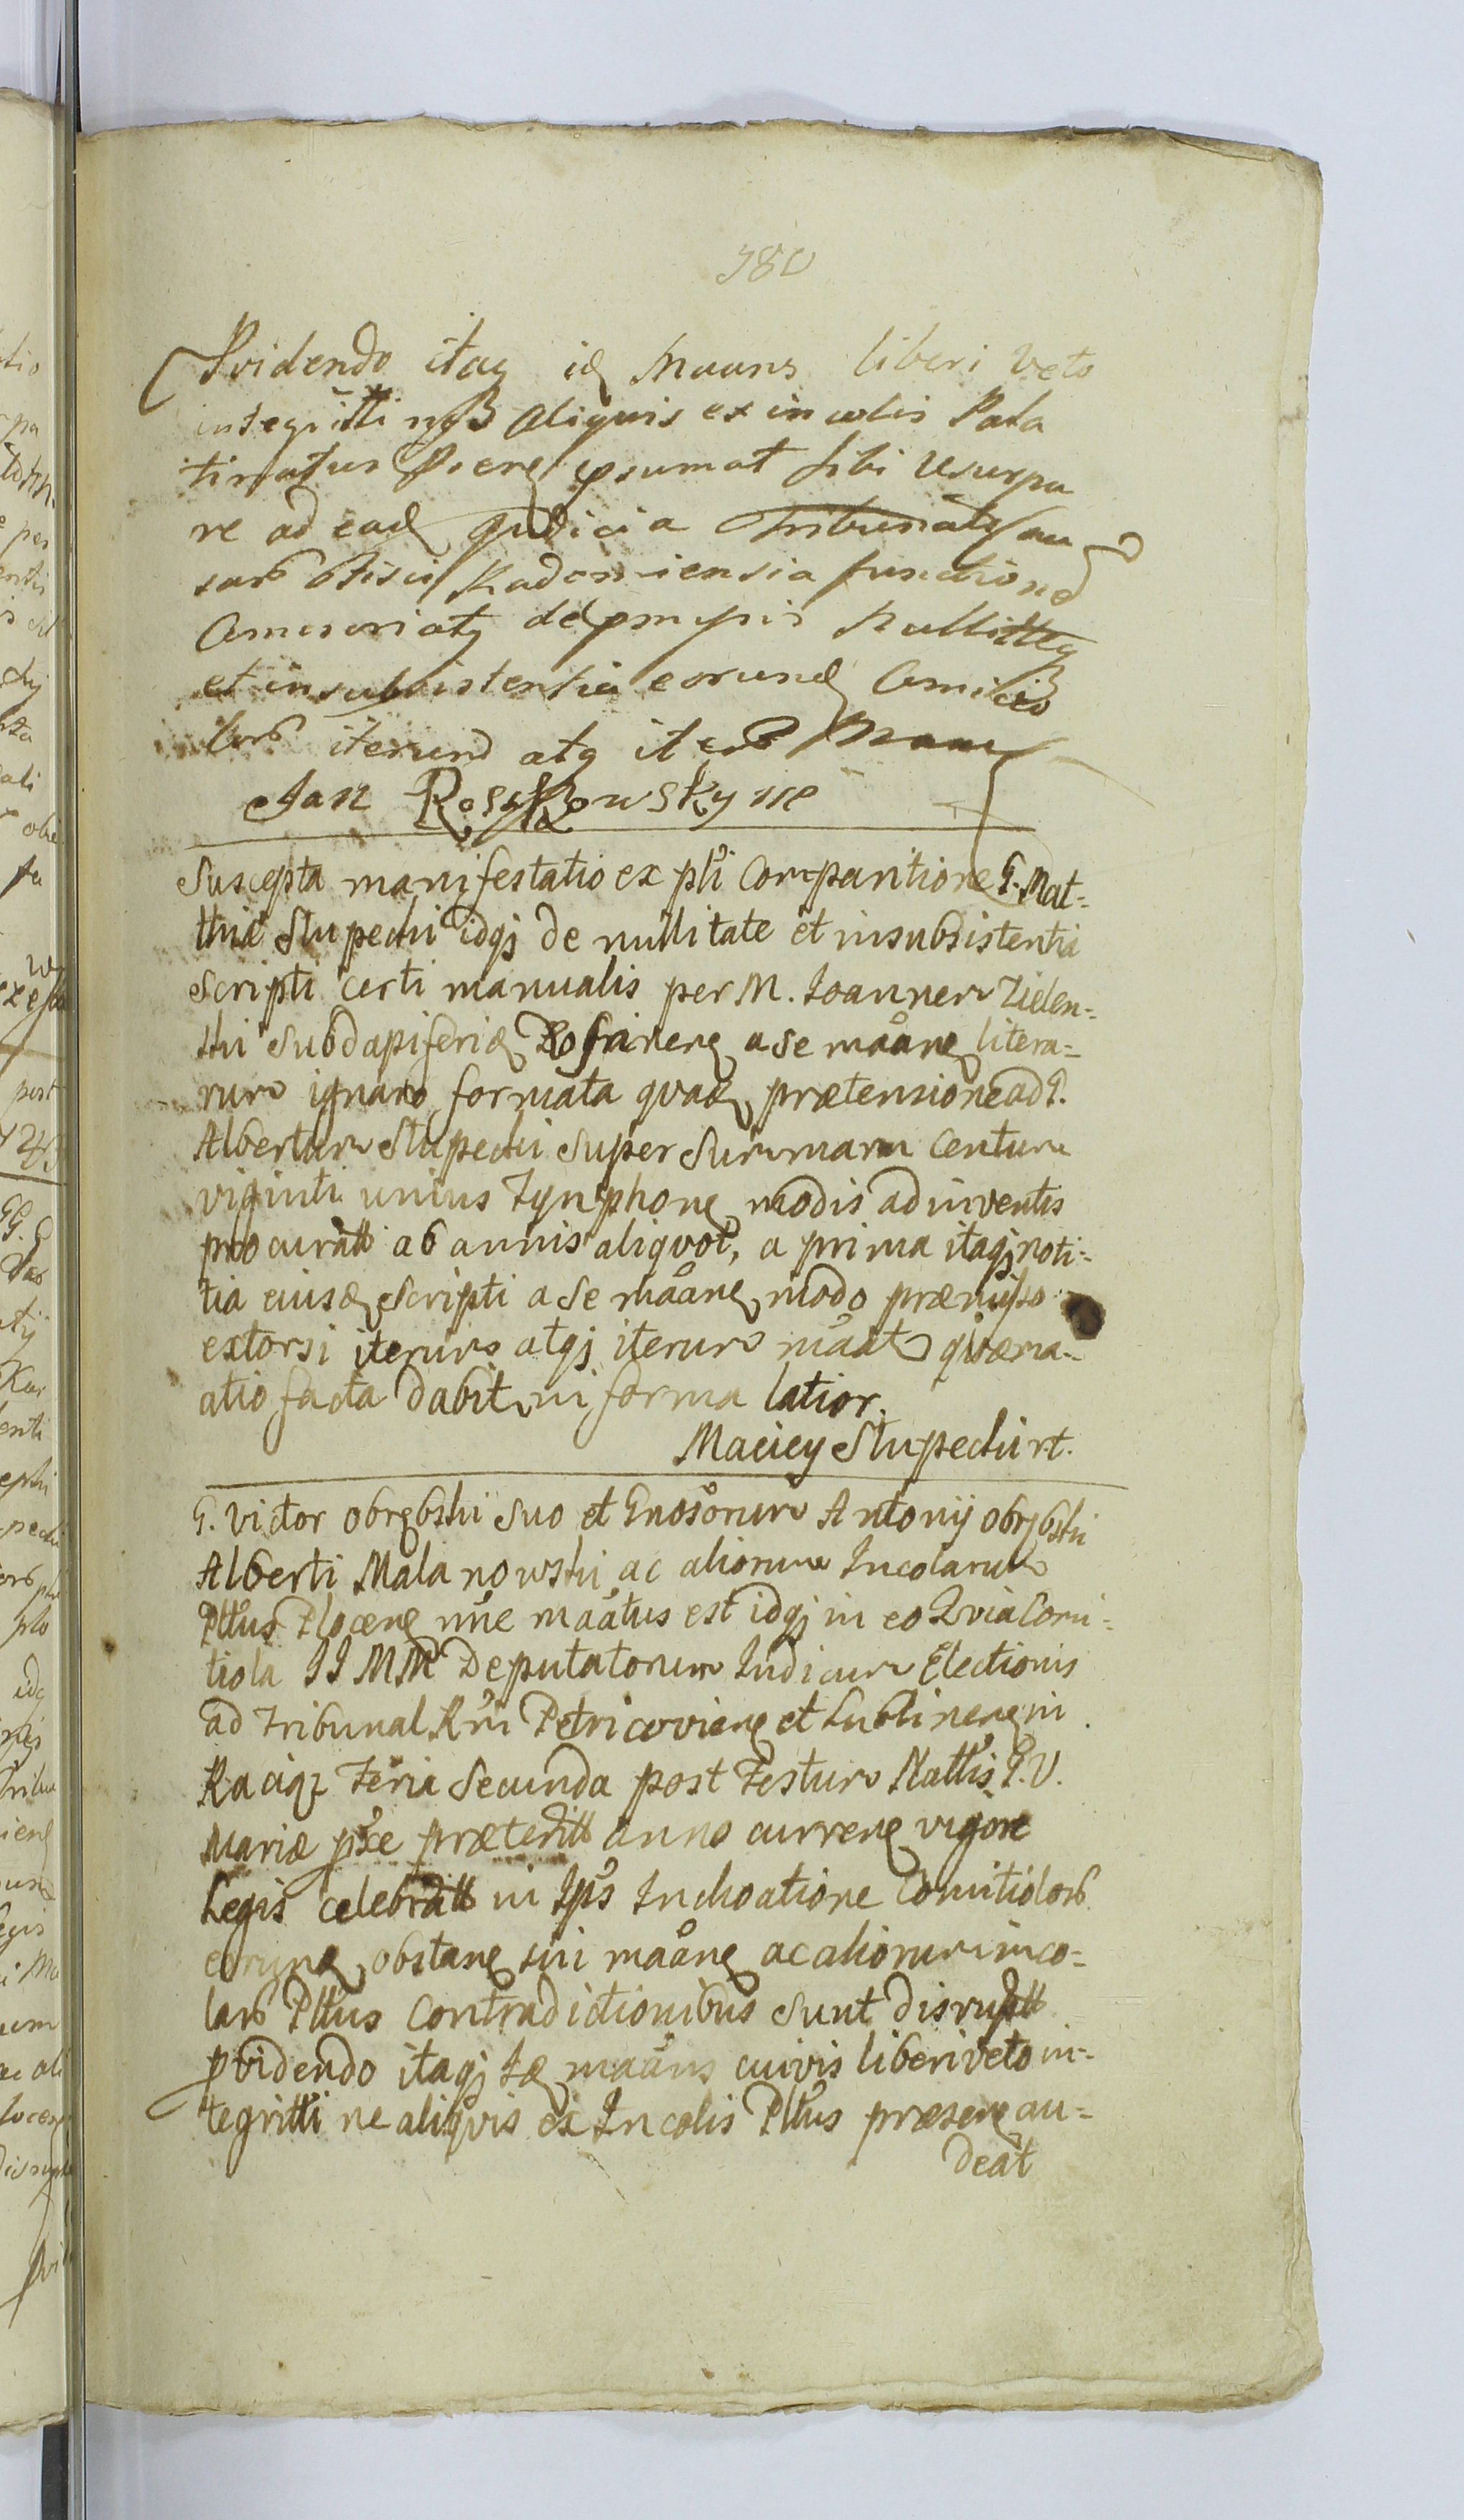 380
Pvidendo itaq id Maans liberi veto
integritti nqz aliquis ex incolis Pala
tinatus Procen psumat sibi Usurpa
re ad ead Judicia Tribunal
Fisci Radomiensia function
Comissoriatq de pmpis Nullitteq
et insubsistentia eorund Comitio
lorb iterund atq iterb
Jan Roszkowsky mp
Suscepta manifestatio ex pti Comparitione G. Mat-
thiæ Slupecki idqj de nullitate et insubsistentia
scripti certi manualis per M. Joannem Zielen-
ski Subdapiferid a se maane litera-
rum ignaro formata quad prætensione ad G.
Albertum Slupecki super Summam Centum
viginti unius Tynphone modis adinventis
procuratt ab annis aliqvot, a prima itaqj noti-
tia eiusd scripti a se maane modo præmisso
extorsi iterum atqj iterum maat qvæma-
atio facta dabit in forma latior.
Maciey Slupecki rt.
G. Victor Obrębski suo et Gnosorum Antonij Obrębski
Alberti Malanowski ac aliorum Incolarum
Pttus Plocene nne maatus est idqj in eo Qvia Comi-
tiola JJ MM Deputatorum Judicum Electionis
ad Tribunal Rni Petricoviene et Lublinene in
Raciąz Feria Secunda post Festum Nattis B. V.
Mariæ pxe præteritt anno currene vigore
Legis celebratt in Ips Inchoatione Comitiolorb
eorund obstane sui maane ac aliorum inco-
larb Pttus Contradictionibus sunt disruptt
pvidendo itaqj Id maans cuivis liberi veto in-
tegritti ne aliqvis ex Incolis Pttus præsene au-
deat